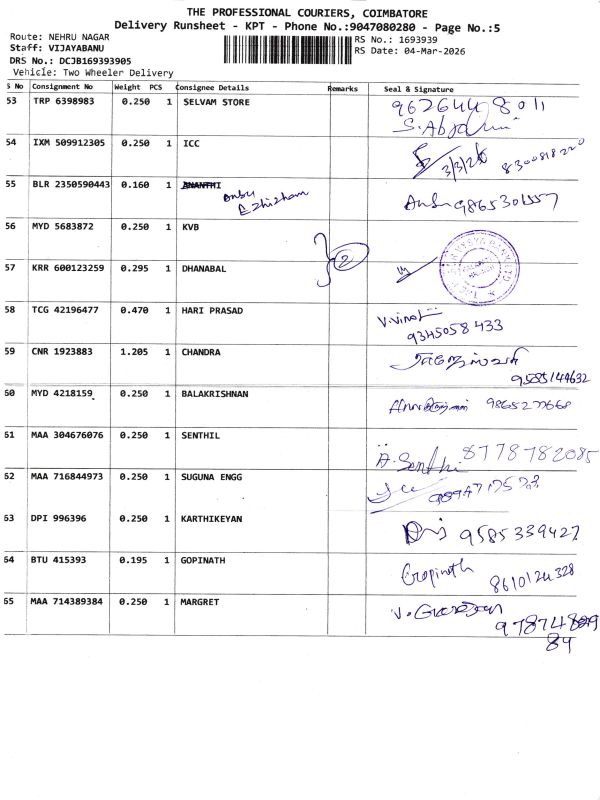 THE PROFESSIONAL COURIERS, COIMBATORE
Delivery Runsheet - KPT - Phone No.:9047080280 - Page No.:5
Route: NEHRU NAGAR
RS No.: 1693939
Staff: VIJAYABANU
RS Date: 04-Mar-2026
DRS No.: DCJB169393905
Vehicle: Two Wheeler Delivery
S No Consignment No Weight PCS Consignee Details Remarks Seal & Signature
53 TRP 6398983 0.250 1 SELVAM STORE 9626448011
54 IXM 509912305 0.250 1 ICC
3/3/26
55 BLR 2350590443 0.160 1 ANANTHI
Anbu
Ezhizham
56 MYD 5683872 0.250 1 KVB
2
57 KRR 600123259 0.295 1 DHANABAL
58 TCG 42196477 0.470 1 HARI PRASAD V.Vinoth
9345058433
59 CNR 1923883 1.205 1 CHANDRA ராஜேஸ்வரி
9585144632
60 MYD 4218159 0.250 1 BALAKRISHNAN 9865277668
61 MAA 304676076 0.250 1 SENTHIL A.Senthil 8778782085
62 MAA 716844973 0.250 1 SUGUNA ENGG
63 DPI 996396 0.250 1 KARTHIKEYAN 9585339427
64 BTU 415393 0.195 1 GOPINATH Gopinath 8610124328
65 MAA 714389384 0.250 1 MARGRET
84